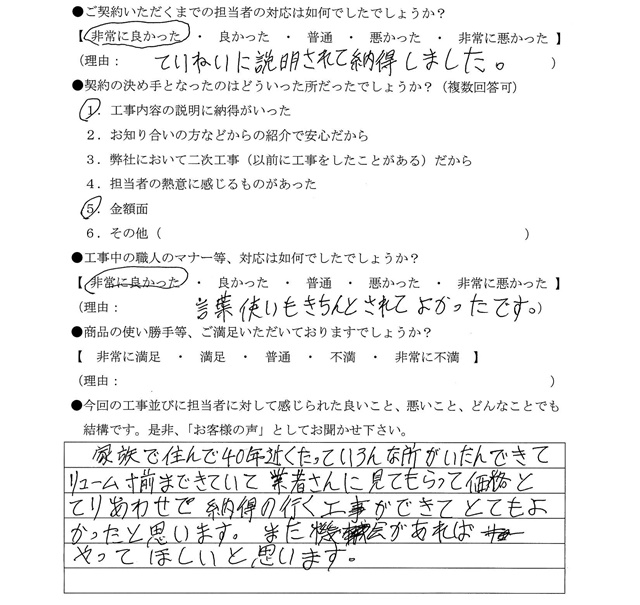 ●ご契約いただくまでの担当者の対応は如何でしたでしょうか？
【 非常に良かった ・ 良かった ・ 普通 ・ 悪かった ・ 非常に悪かった 】
（理由： ていねいに説明されて納得しました。 ）
●契約の決め手となったのはどういった所だったでしょうか？（複数回答可）
１．工事内容の説明に納得がいった
２．お知り合いの方などからの紹介で安心だから
３．弊社において二次工事（以前に工事をしたことがある）だから
４．担当者の熱意に感じるものがあった
５．金額面
６．その他（ ）
●工事中の職人のマナー等、対応は如何でしたでしょうか？
【 非常に良かった ・ 良かった ・ 普通 ・ 悪かった ・ 非常に悪かった 】
（理由： 言葉使いもきちんとされてよかったです。）
●商品の使い勝手等、ご満足いただいておりますでしょうか？
【 非常に満足 ・ 満足 ・ 普通 ・ 不満 ・ 非常に不満 】
（理由： ）
●今回の工事並びに担当者に対して感じられた良いこと、悪いこと、どんなことでも
結構です。是非、「お客様の声」としてお聞かせ下さい。
家族で住んで40年近くたっていろんな所がいたんできて
リューム寸前まできていて業者さんに見てもらって価格と
てりあわせで納得の行く工事ができてとてもよ
かったと思います。また機会があれば
やってほしいと思います。